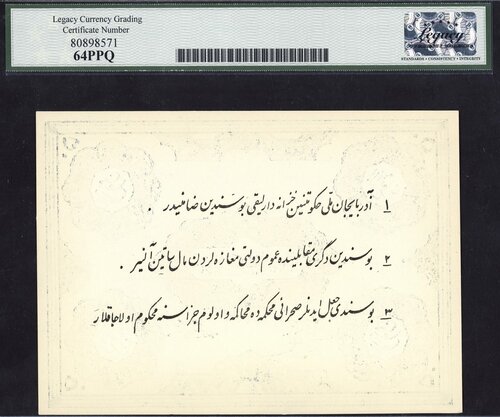 Legacy Currency Grading
Certificate Number
80898571
64PPQ
Legacy
STANDARDS • CONSISTENCY • INTEGRITY
۱ آذربایجان ملی حکومتینین خزانه دارلیقی بوسندین ضامنیدر .
۲ بوسندین دگری مقابلینده عموم دولتی مغازه لردن مال ساتین آلنیر .
۳ بوسندی جعل ایدنلر صحرائی محکمه ده محاکمه و اولوم جزاسنه محکوم اولاجاقلار